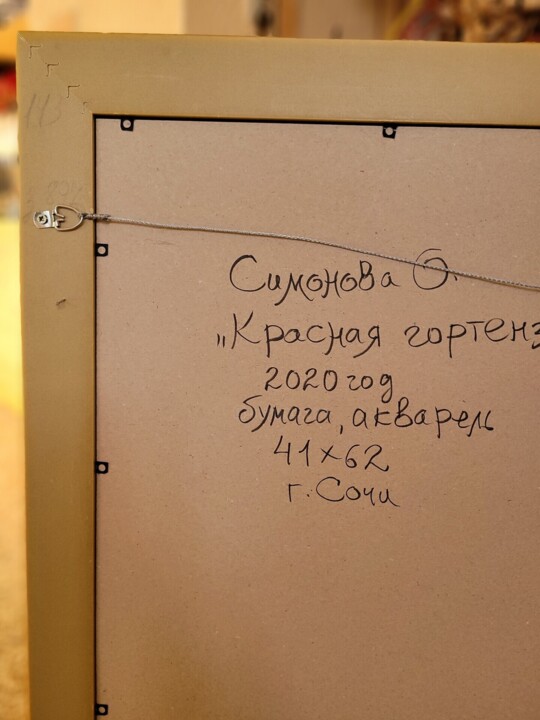 Симонова О.
„Красная гортенз
2020 год
бумага, акварель
41×62
г. Сочи